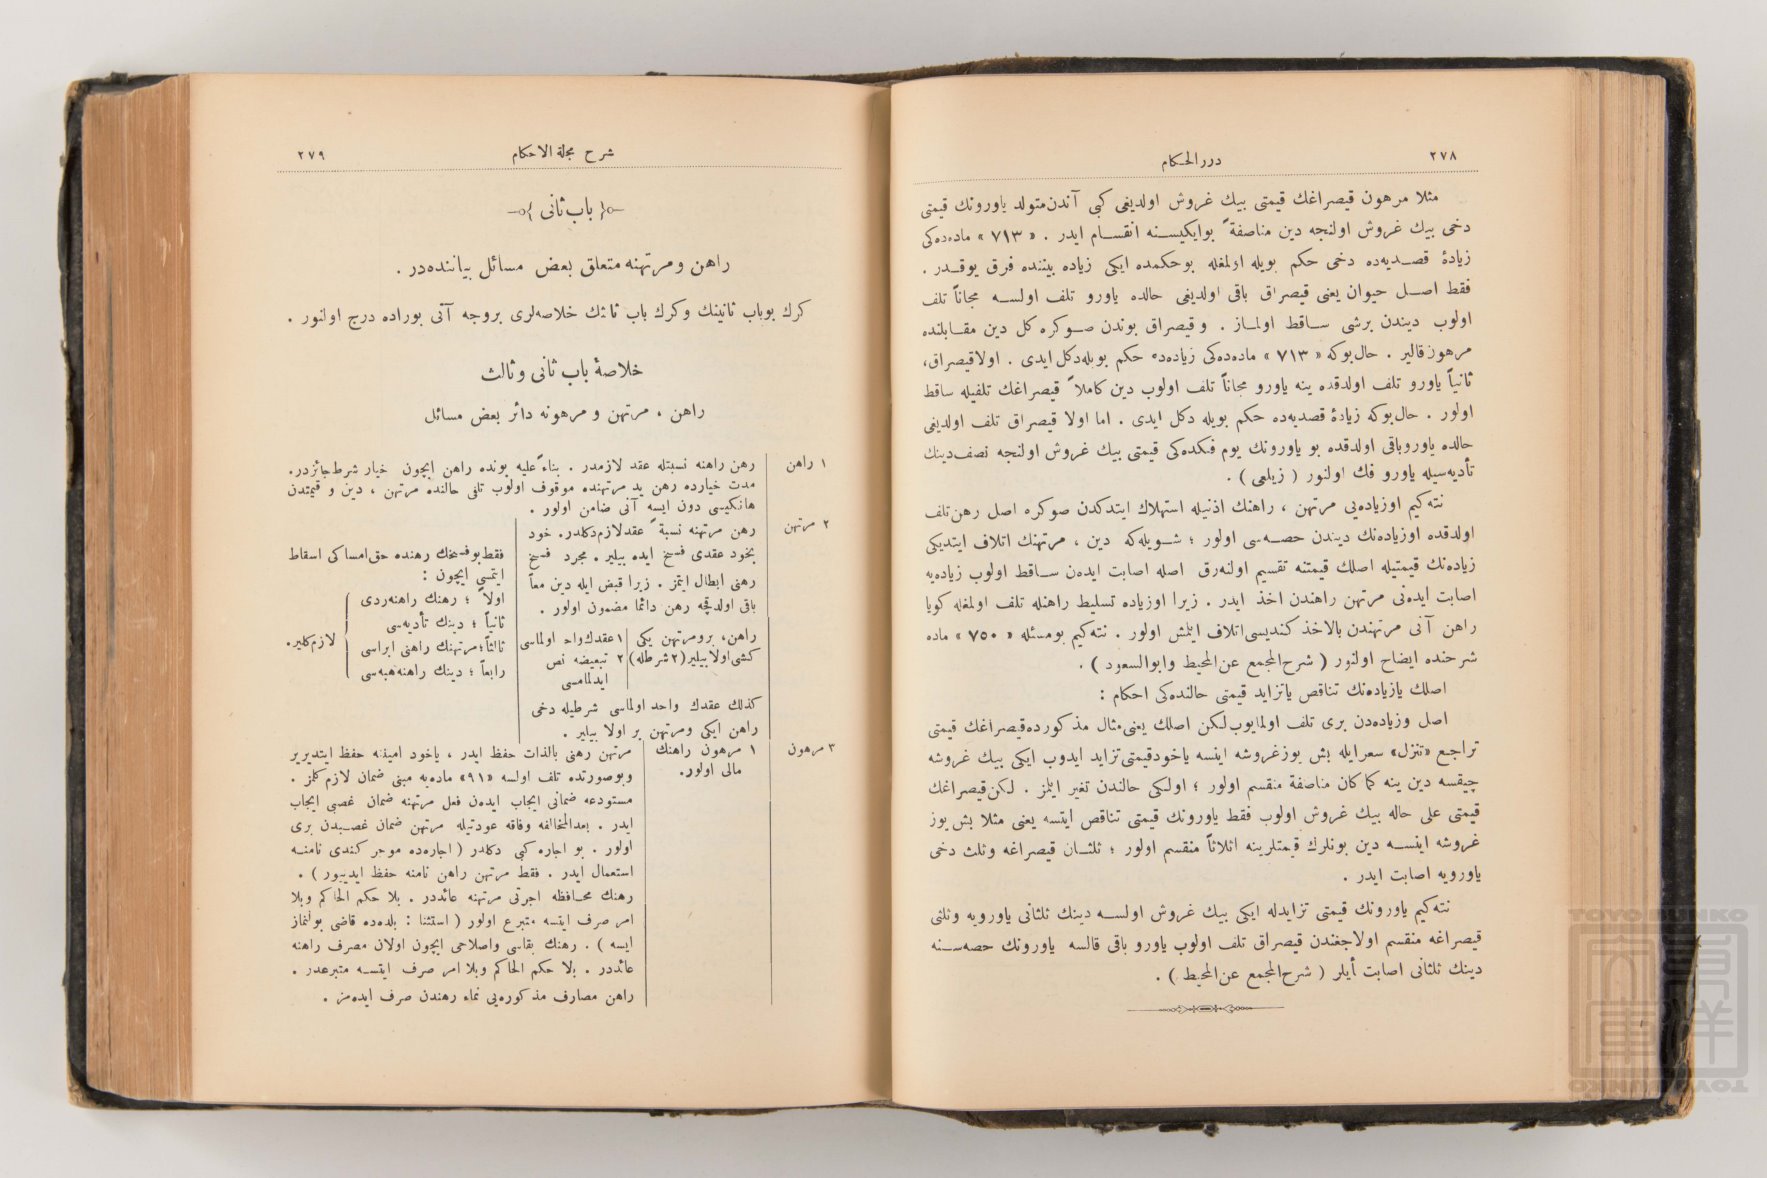 ٢٧٨
درر الحكام
مثلا مرهون قيصراغك قيمتى بيك غروش اولديغى كبى آندن متولد ياورونك قيمتى
دخى بيك غروش اولنجه دين مناصفةً بوايكيسنه انقسام ايدر . « ٧١٣ » ماده‌ده‌كى
زيادۀ قصديه‌ده دخى حكم بويله اولمغله بوحكمده ايكى زياده بيننده فرق يوقدر .
فقط اصل حيوان يعنى قيصراق باقى اولديغى حالده ياورو تلف اولسه مجاناً تلف
اولوب ديندن برشى ساقط اولماز . وقيصراق بوندن صوكره كل دين مقابلنده
مرهون قالير . حال بوكه « ٧١٣ » ماده‌ده‌كى زياده‌ده حكم بويله دكل ايدى . اولا قيصراق،
ثانياً ياورو تلف اولدقده ينه ياورو مجاناً تلف اولوب دين كاملاً قيصراغك تلفيله ساقط
اولور . حال بوكه زيادۀ قصديه‌ده حكم بويله دكل ايدى . اما اولا قيصراق تلف اولديغى
حالده ياورو باقى اولدقده بو ياورونك يوم فكده‌كى قيمتى بيك غروش اولنجه نصف دينك
تأديه‌سيله ياورو فك اولنور ( زيلعى ) .
نته‌كيم اوزياده‌يى مرتهن ، راهنك اذنيله استهلاك ايتدكدن صوكره اصل رهن تلف
اولدقده اوزياده‌نك ديندن حصه‌سى اولور ؛ شويله‌كه دين ، مرتهنك اتلاف ايتديكى
زياده‌نك قيمتيله اصلك قيمتنه تقسيم اولنه‌رق اصله اصابت ايدن ساقط اولوب زياده‌يه
اصابت ايده‌نى مرتهن راهندن اخذ ايدر . زيرا اوزياده تسليط راهنله تلف اولمغله كويا
راهن آنى مرتهندن بالاخذ كنديسى اتلاف ايتمش اولور . نته‌كيم بومسئله « ٧٥٠ » ماده
شرحنده ايضاح اولنور ( شرح المجمع عن المحيط وابوالسعود ) .
اصلك يازياده‌نك تناقص ياتزايد قيمتى حالنده‌كى احكام :
اصل وزياده‌دن برى تلف اولمايوب لكن اصلك يعنى مثال مذكورده قيصراغك قيمتى
تراجع «تنزل» سعرايله بش يوزغروشه اينسه ياخود قيمتى تزايد ايدوب ايكى بيك غروشه
چيقسه دين ينه كماكان مناصفة منقسم اولور ؛ اولكى حالندن تغير ايتمز . لكن قيصراغك
قيمتى على حاله بيك غروش اولوب فقط ياورونك قيمتى تناقص ايتسه يعنى مثلا بش يوز
غروشه اينسه دين بونلرك قيمتلرينه اثلاثاً منقسم اولور ؛ ثلثان قيصراغه وثلث دخى
ياورويه اصابت ايدر .
نته‌كيم ياورونك قيمتى تزايدله ايكى بيك غروش اولسه دينك ثلثانى ياورويه وثلثى
قيصراغه منقسم اولاجغندن قيصراق تلف اولوب ياورو باقى قالسه ياورونك حصه‌سنه
دينك ثلثانى اصابت أيلر ( شرح المجمع عن المحيط ) .
شرح مجلة الاحكام
٢٧٩
باب ثانى
راهن ومرتهنه متعلق بعض مسائل بياننده‌در .
كرك بوباب ثانينك وكرك باب ثالثك خلاصه‌لرى بروجه آتى بوراده درج اولنور .
خلاصۀ باب ثانى وثالث
راهن ، مرتهن و مرهونه دائر بعض مسائل
١ راهن
رهن راهنه نسبتله عقد لازمدر . بناءً عليه بونده راهن ايچون خيار شرط جائزدر.
مدت خيارده رهن يد مرتهنده موقوف اولوب تلفى حالنده مرتهن ، دين و قيمتدن
هانكيسى دون ايسه آنى ضامن اولور .
٢ مرتهن
رهن مرتهنه نسبةً عقد لازم دكلدر. خود
بخود عقدى فسخ ايده بيلير . مجرد فسخ
رهنى ابطال ايتمز . زيرا قبض ايله دين معاً
باقى اولدقچه رهن دائما مضمون اولور .
فقط بوفسخك رهنده حق امساكى اسقاط
ايتمسى ايچون :
اولاً ؛ رهنك راهنه‌ردى
ثانياً ؛ دينك تأديه‌سى
ثالثاً ؛ مرتهنك راهنى ابراسى
رابعاً ؛ دينك راهنه هبه‌سى
لازم كلير.
راهن، برومرتهن يكى
كشى اولابيلير (٢ شرطله)
١ عقدك واحد اولماسى
٢ تبعيضه نص
ايدلمامسى
كذلك عقدك واحد اولماسى شرطيله دخى
راهن ايكى ومرتهن بر اولا بيلير .
٣ مرهون
١ مرهون راهنك
مالى اولور.
مرتهن رهنى بالذات حفظ ايدر ، ياخود امينه حفظ ايتديرير
وبوصورتده تلف اولسه «٩١» ماده‌يه مبنى ضمان لازم كلمز .
مستودعه ضمانى ايجاب ايدن فعل مرتهنه ضمان غصبى ايجاب
ايدر . بعدالمخالفه وفاقه عودتيله مرتهن ضمان غصبدن برى
اولور . بو اجاره كبى دكلدر ( اجاره‌ده موجر كندى نامنه
استعمال ايدر . فقط مرتهن راهن نامنه حفظ ايدييور ) .
رهنك محافظه اجرتى مرتهنه عائددر . بلا حكم الحاكم وبلا
امر صرف ايتسه متبرع اولور ( استثنا : بلده‌ده قاضى بولنماز
ايسه ) . رهنك بقاسى واصلاحى ايچون اولان مصرف راهنه
عائددر . بلا حكم الحاكم وبلا امر صرف ايتسه متبرعدر .
راهن مصارف مذكوره‌يى نماء رهندن صرف ايده‌مز .
TOYO BUNKO
東洋文庫
TOYO BUNKO